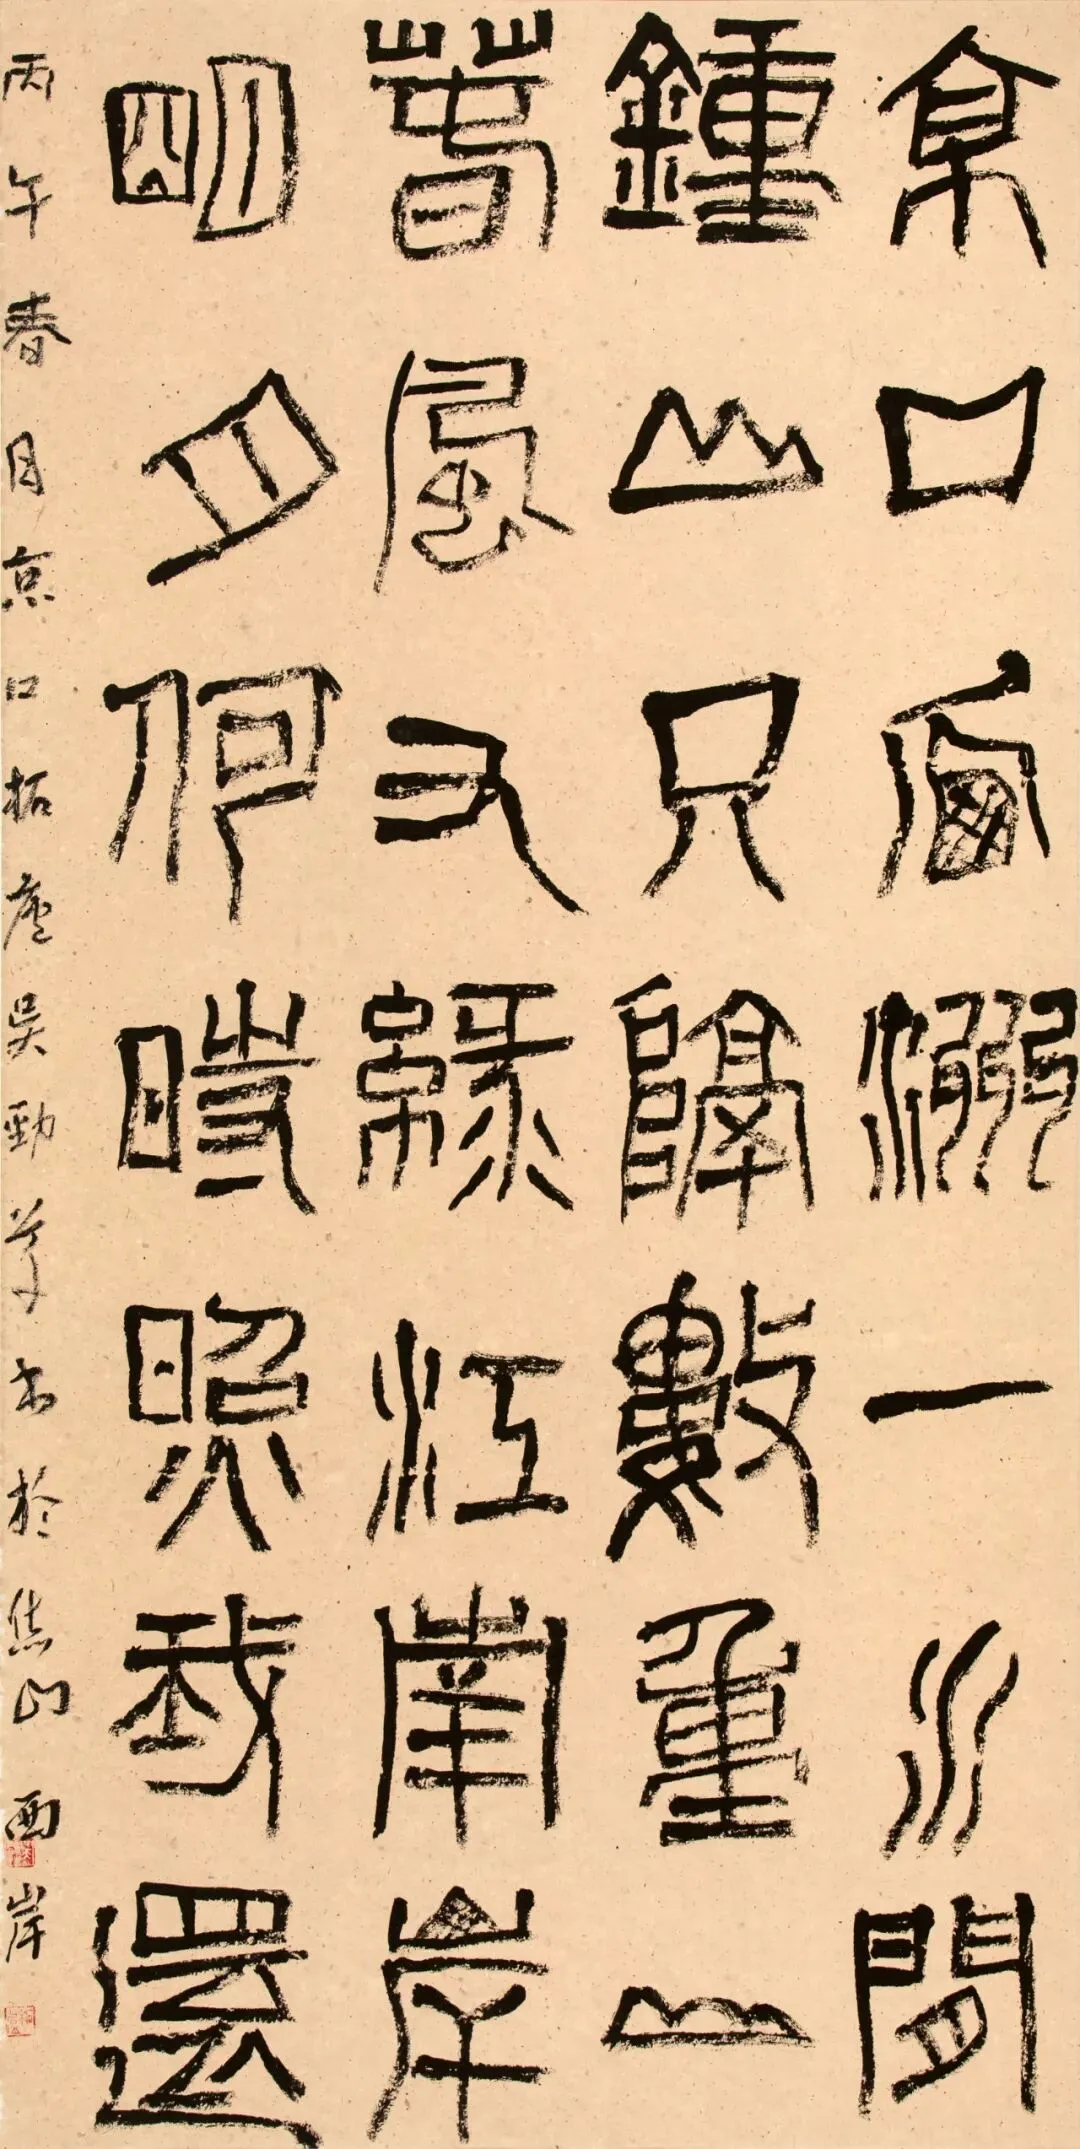 京口瓜洲一水間
鍾山只隔數重山
春風又綠江南岸
明月何時照我還
丙午春月京口拓廬吳勁草书於焦山西岸